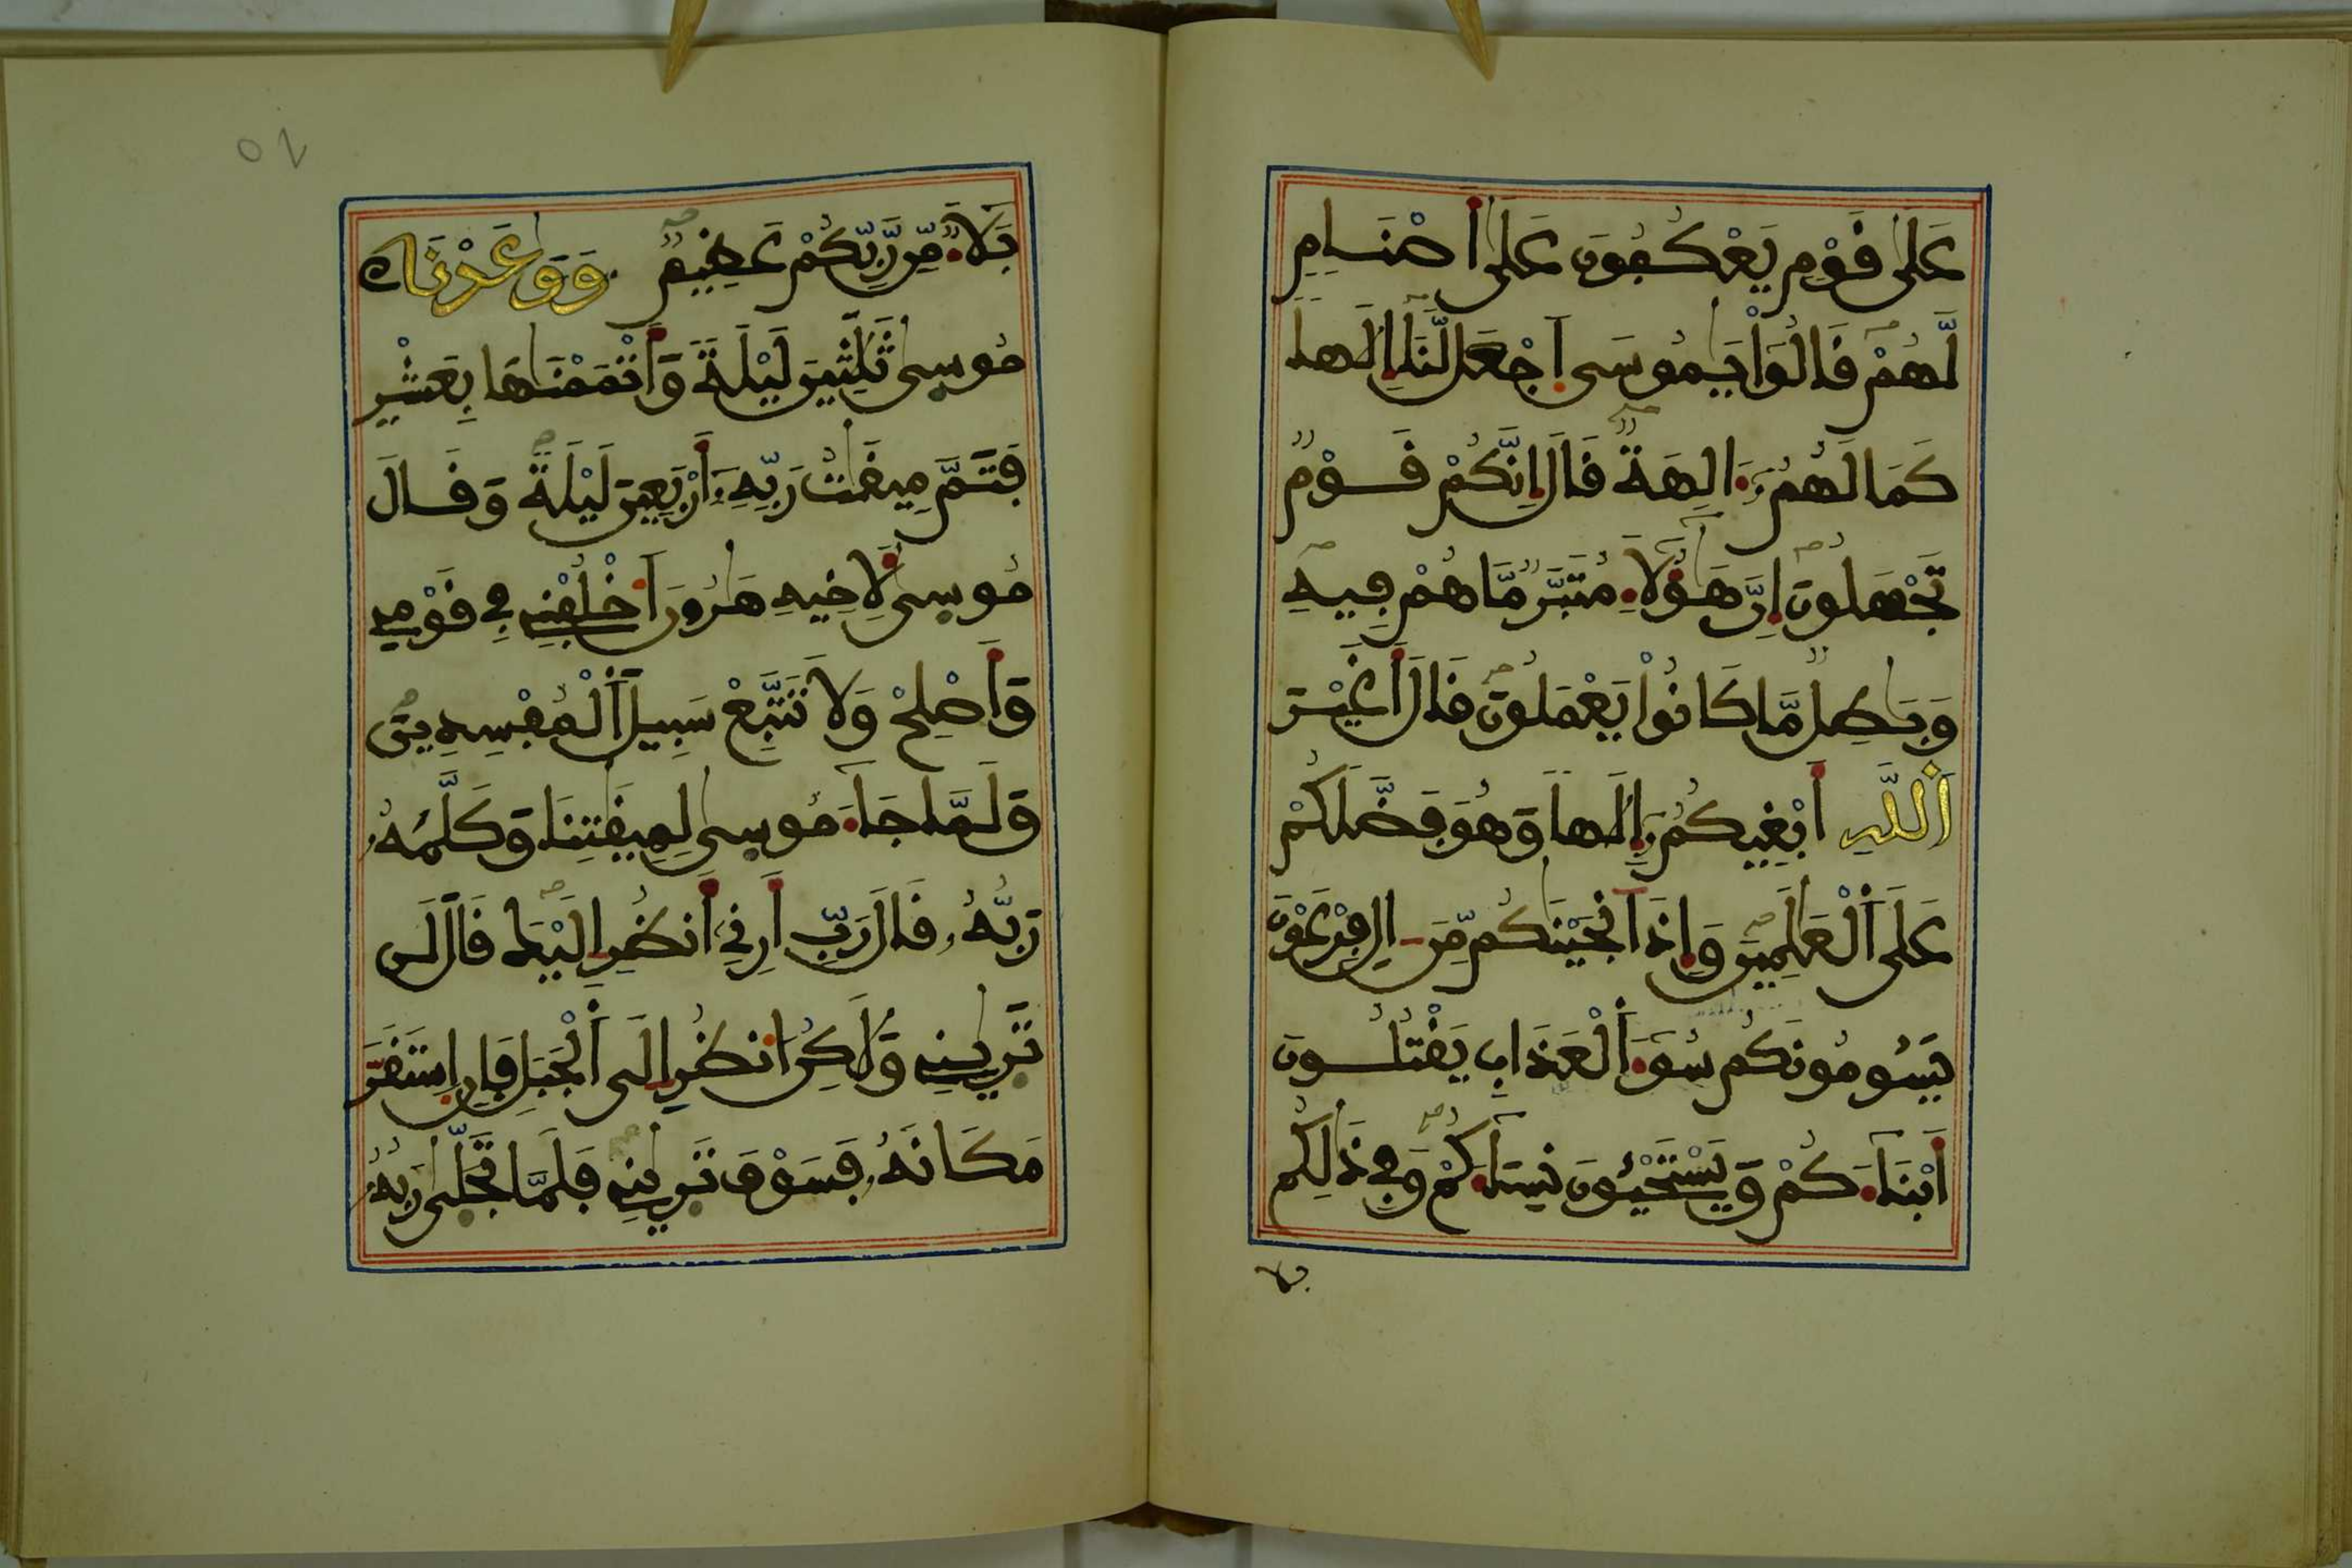 عَلَىٰ قَوْمٍ يَعْكُفُونَ عَلَىٰ أَصْنَامٍ
لَّهُمْ قَالُواْ يَٰمُوسَى اَجْعَل لَّنَا إِلَٰهاً
كَمَا لَهُمُۥٓ ءَالِهَةٌ قَالَ إِنَّكُمْ قَوْمٌ
تَجْهَلُونَ إِنَّ هَٰٓؤُلَآءِ مُتَبَّرٌ مَّا هُمْ فِيهِ
وَبَٰطِلٌ مَّا كَانُواْ يَعْمَلُونَ قَالَ أَغَيْرَ
اَللَّهِ أَبْغِيكُمُۥٓ إِلَٰهاً وَهُوَ فَضَّلَكُمْ
عَلَى اَلْعَٰلَمِينَ وَإِذَ اَنجَيْنَٰكُم مِّنَ ءَالِ فِرْعَوْنَ
يَسُومُونَكُمْ سُوٓءَ اَلْعَذَابِ يَقْتُلُونَ
أَبْنَآءَكُمْ وَيَسْتَحْيُونَ نِسَآءَكُمْ وَفِي ذَٰلِكُم
بلا
بَلَآءٌ مِّن رَّبِّكُمْ عَظِيمٌ وَوَٰعَدْنَا
مُوسَىٰ ثَلَٰثِينَ لَيْلَةً وَأَتْمَمْنَٰهَا بِعَشْرٍ
فَتَمَّ مِيقَٰتُ رَبِّهِۦٓ أَرْبَعِينَ لَيْلَةً وَقَالَ
مُوسَىٰ لِأَخِيهِ هَٰرُونَ اَخْلُفْنِي فِي قَوْمِي
وَأَصْلِحْ وَلَا تَتَّبِعْ سَبِيلَ اَلْمُفْسِدِينَ
وَلَمَّا جَآءَ مُوسَىٰ لِمِيقَٰتِنَا وَكَلَّمَهُۥ
رَبُّهُۥ قَالَ رَبِّ أَرِنِي أَنظُرِ اِلَيْكَ قَالَ لَن
تَرَىٰنِي وَلَٰكِنُ اُنظُرِ اِلَى اَلْجَبَلِ فَإِنِ اِسْتَقَرَّ
مَكَانَهُۥ فَسَوْفَ تَرَىٰنِي فَلَمَّا تَجَلَّىٰ رَبُّهُۥ